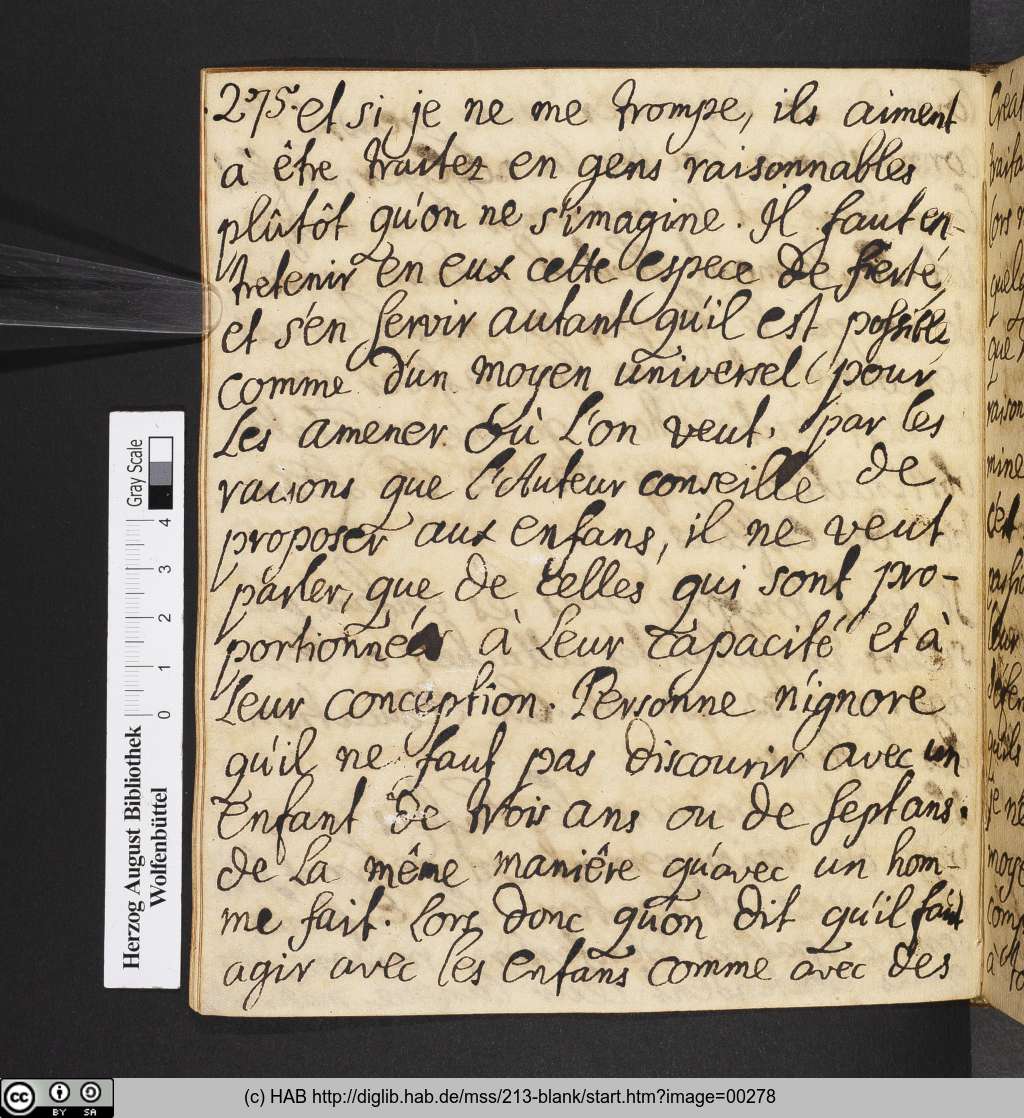 .275. et si, je ne me trompe, ils aiment
à être traitez en gens raisonnables
plûtôt qu'on ne s'imagine. Il faut en-
tretenir en eux cette espece de fierté,
et s'en servir autant qu'il est possible
comme d'un moyen universel (pour
les amener où l'on veut, par les
raisons que l'Auteur conseille de
proposer aux enfans, il ne veut
parler, que de celles qui sont pro-
portionnées à leur capacité et à
leur conceptîon. Personne n'ignore
qu'il ne faut pas discourir avec un
enfant de trois ans ou de sept ans.
de la même maniêre qu'avec un hom-
me fait. Lors donc qu'on dit qu'il faut
agir avec les enfans comme avec des
Herzog August Bibliothek
Wolfenbüttel
Gray Scale
0 1 2 3 4
cc BY SA
(c) HAB http://diglib.hab.de/mss/213-blank/start.htm?image=00278